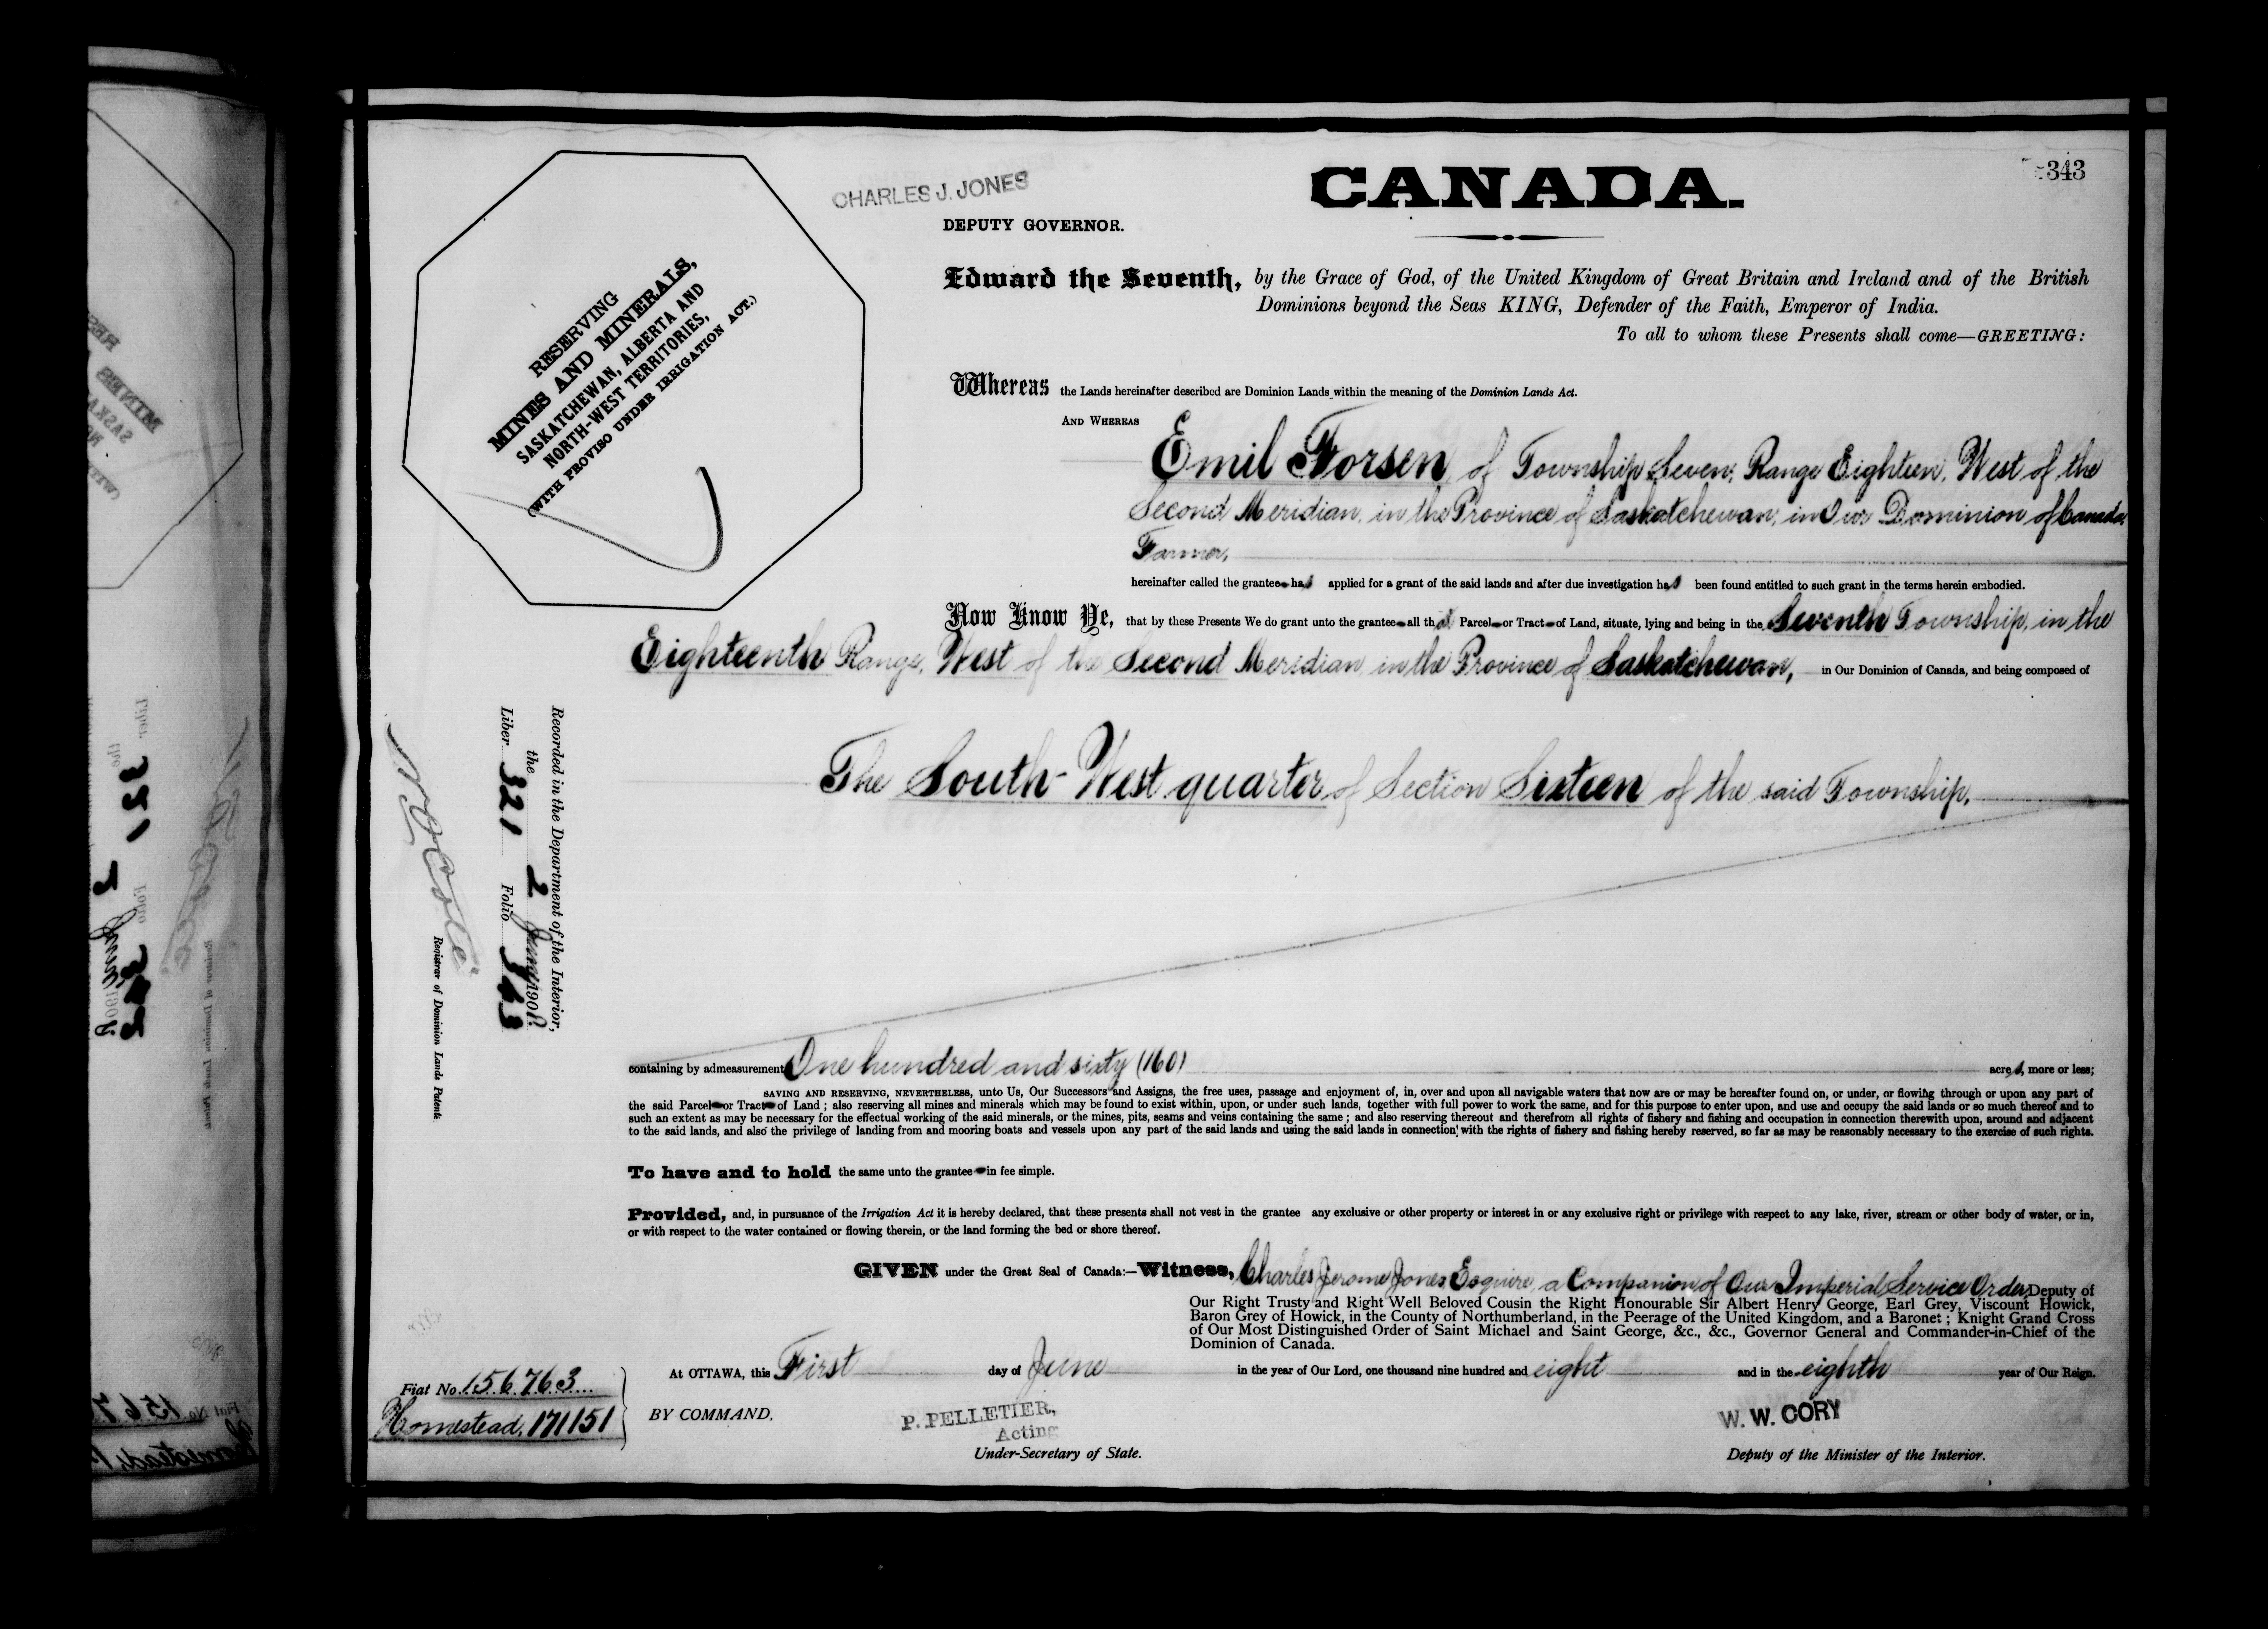 343
CHARLES J. JONES
DEPUTY GOVERNOR.
CANADA.
RESERVING
MINES AND MINERALS,
SASKATCHEWAN, ALBERTA AND
NORTH-WEST TERRITORIES,
(WITH PROVISO UNDER IRRIGATION ACT.)
Edward the Seventh, by the Grace of God, of the United Kingdom of Great Britain and Ireland and of the British
Dominions beyond the Seas KING, Defender of the Faith, Emperor of India.
To all to whom these Presents shall come—GREETING:
Whereas the Lands hereinafter described are Dominion Lands within the meaning of the Dominion Lands Act.
AND WHEREAS
Emil Forsen of Township Seven, Range Eighteen, West of the
Second Meridian, in the Province of Saskatchewan, in Our Dominion of Canada,
Farmer,
hereinafter called the grantee has applied for a grant of the said lands and after due investigation has been found entitled to such grant in the terms herein embodied.
Now Know Ye, that by these Presents We do grant unto the grantee all that Parcel or Tract of Land, situate, lying and being in the Seventh Township, in the
Eighteenth Range, West of the Second Meridian, in the Province of Saskatchewan, in Our Dominion of Canada, and being composed of
The South-West quarter of Section Sixteen of the said Township,
Recorded in the Department of the Interior,
the 2 June 1908.
Liber 321 Folio 343
N O Coté
Registrar of Dominion Lands Patents.
containing by admeasurement One hundred and sixty (160) acres, more or less;
SAVING AND RESERVING, NEVERTHELESS, unto Us, Our Successors and Assigns, the free uses, passage and enjoyment of, in, over and upon all navigable waters that now are or may be hereafter found on, or under, or flowing through or upon any part of
the said Parcel or Tract of Land ; also reserving all mines and minerals which may be found to exist within, upon, or under such lands, together with full power to work the same, and for this purpose to enter upon, and use and occupy the said lands or so much thereof and to
such an extent as may be necessary for the effectual working of the said minerals, or the mines, pits, seams and veins containing the same ; and also reserving thereout and therefrom all rights of fishery and fishing and occupation in connection therewith upon, around and adjacent
to the said lands, and also the privilege of landing from and mooring boats and vessels upon any part of the said lands and using the said lands in connection with the rights of fishery and fishing hereby reserved, so far as may be reasonably necessary to the exercise of such rights.
To have and to hold the same unto the grantee in fee simple.
Provided, and, in pursuance of the Irrigation Act it is hereby declared, that these presents shall not vest in the grantee any exclusive or other property or interest in or any exclusive right or privilege with respect to any lake, river, stream or other body of water, or in,
or with respect to the water contained or flowing therein, or the land forming the bed or shore thereof.
GIVEN under the Great Seal of Canada:—Witness, Charles Jerome Jones Esquire, a Companion of Our Imperial Service Order, Deputy of
Our Right Trusty and Right Well Beloved Cousin the Right Honourable Sir Albert Henry George, Earl Grey, Viscount Howick,
Baron Grey of Howick, in the County of Northumberland, in the Peerage of the United Kingdom, and a Baronet ; Knight Grand Cross
of Our Most Distinguished Order of Saint Michael and Saint George, &c., &c., Governor General and Commander-in-Chief of the
Dominion of Canada.
At OTTAWA, this First day of June in the year of Our Lord, one thousand nine hundred and eight and in the eighth year of Our Reign.
Fiat No. 156763
Homestead, 171151
BY COMMAND,
P. PELLETIER,
Acting
Under-Secretary of State.
W. W. CORY
Deputy of the Minister of the Interior.